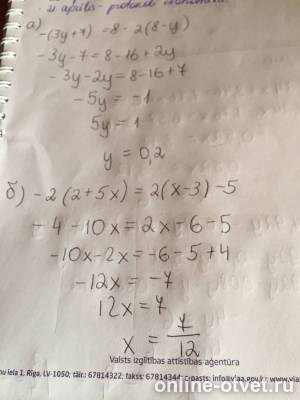 21 aprīlis - protokol
а) -(3y+7)=8-2(8-y)
-3y-7=8-16+2y
-3y-2y=8-16+7
-5y=-1
5y=1
y=0,2
б) -2(2+5x)=2(x-3)-5
-4-10x=2x-6-5
-10x-2x=-6-5+4
-12x=-7
12x=7
x=7/12
Valsts izglītības attīstības aģentūra
ņu iela 1, Rīga, LV-1050; tālr.: 67814322; fakss: 67814344; e-pasts: info@viaa.gov.lv
online-otvet.ru